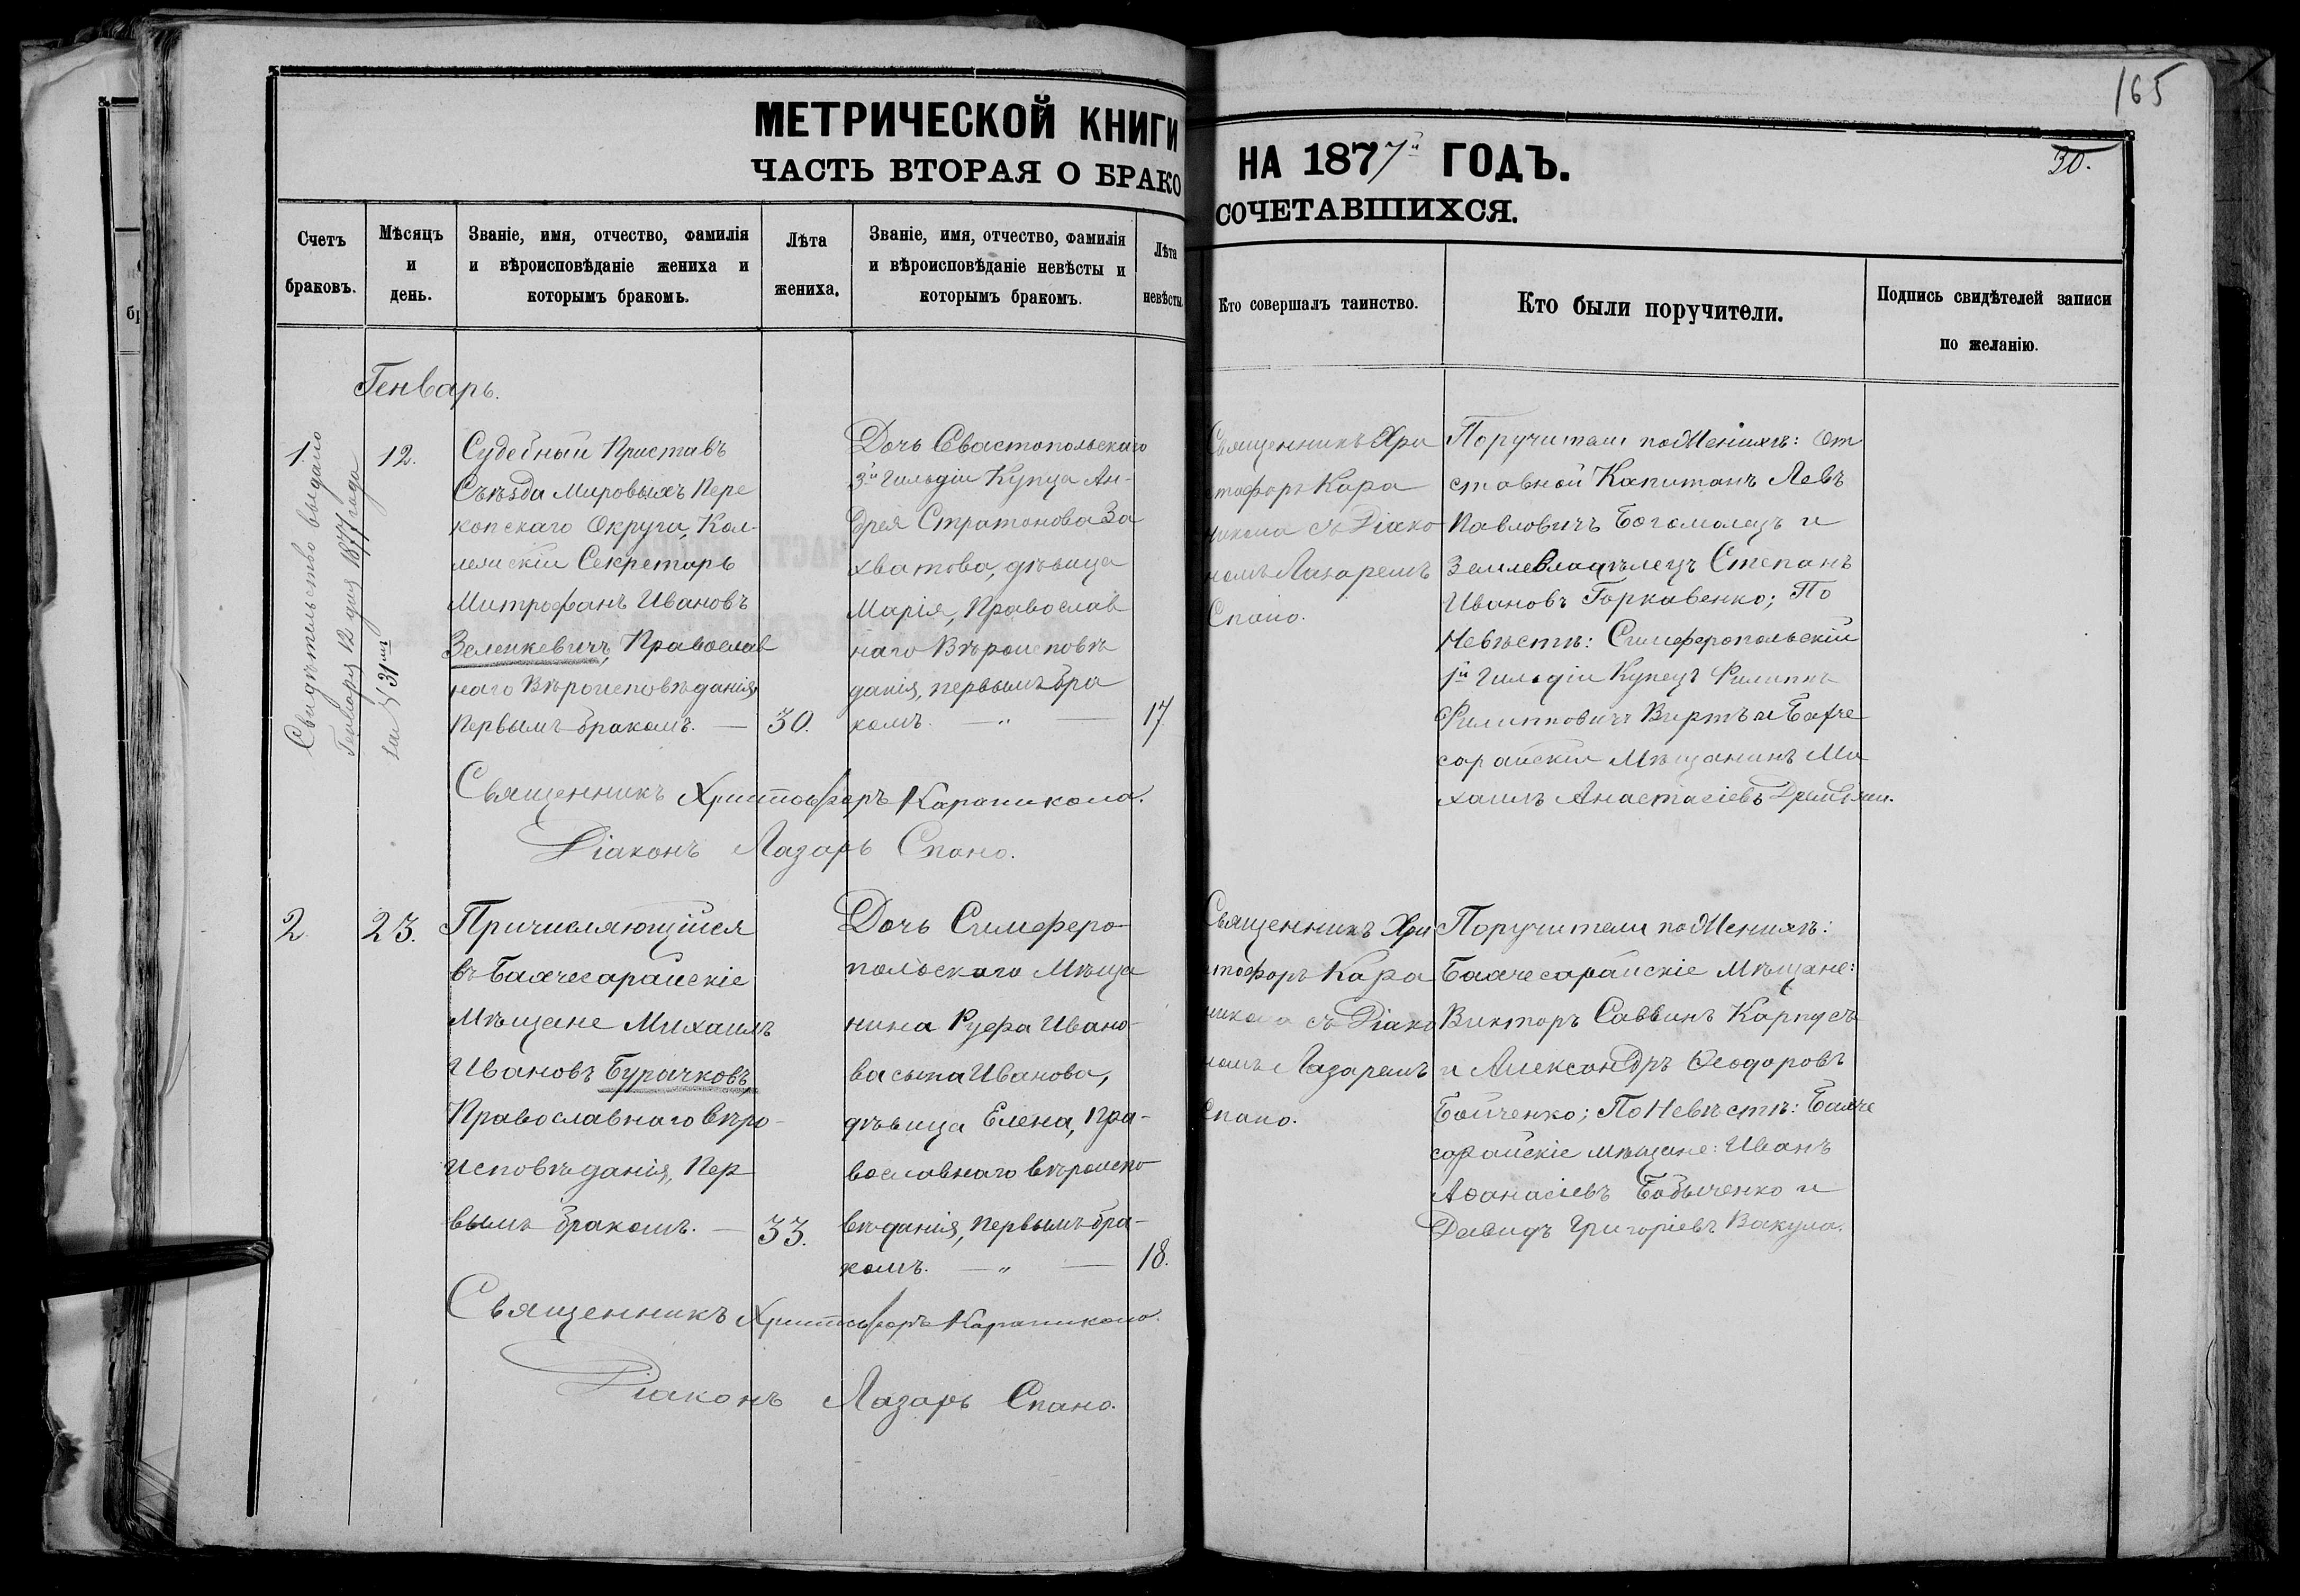 165
МЕТРИЧЕСКОЙ КНИГИ НА 1877й ГОДЪ.
30.
ЧАСТЬ ВТОРАЯ О БРАКОСОЧЕТАВШИХСЯ.
Счетъ
браковъ.
Мѣсяцъ
и
день.
Званіе, имя, отчество, фамилія
и вѣроисповѣданіе жениха и
которымъ бракомъ.
Лѣта
жениха.
Званіе, имя, отчество, фамилія
и вѣроисповѣданіе невѣсты и
которымъ бракомъ.
Лѣта
невѣсты.
Кто совершалъ таинство.
Кто были поручители.
Подпись свидѣтелей записи
по желанію.
Генварь.
1.
Свидѣтельство выдано
Генваря 12 дня 1877 года
за № 31мъ
12.
Судебный Приставъ
Съѣзда Мировыхъ Пере
копскаго Округа, Кол-
лежскій Секретарь
Митрофанъ Ивановъ
Зеленкевичъ, Православ
наго Вѣроисповѣданія
Первымъ бракомъ. — 30.
Дочь Севастопольскаго
3й Гильдіи Купца Ан-
дрея Стратонова За
хватова, дѣвица
Марія, Православ
наго Вѣроисповѣ
данія, первымъ бра
комъ. — „ — 17.
Священникъ Хри
стофоръ Кара
никола съ Діако
номъ Лазаремъ
Спано.
Поручители по Женихѣ: От
ставной Капитанъ Левъ
Павловичъ Богомолецъ и
Землевладѣлецъ Степанъ
Ивановъ Горкавенко; По
Невѣстѣ: Симферопольскій
1й Гильдіи Купецъ Филиппъ
Филипповичъ Виртъ и Бахче
сарайскій Мѣщанинъ Ми
хаилъ Анастасіевъ
Священникъ Христофоръ Караникола.
Діаконъ Лазарь Спано.
2.
23.
Причисляющійся
въ Бахчесарайскіе
Мѣщане Михаилъ
Ивановъ Бурачковъ,
Православнаго вѣро-
исповѣданія, Пер
вымъ бракомъ. — 33.
Дочь Симферо-
польскаго Мѣща
нина Руфа Ивано-
ва сына Иванова,
дѣвица Елена, Пра-
вославнаго вѣроиспо
вѣданія, первымъ бра-
комъ. — „ — 18.
Священникъ Хри
стофоръ Кара
никола съ Діако
номъ Лазаремъ
Спано.
Поручители по Женихѣ:
Бахчесарайскіе Мѣщане:
Викторъ Саввинъ Карпусь
и Александръ Ѳеодоровъ
Бойченко; По Невѣстѣ: Бахче
сарайскіе мѣщане: Иванъ
Аѳанасіевъ Бабыченко и
Давидъ Григоріевъ Вакула.
Священникъ Христофоръ Караникола.
Діаконъ Лазарь Спано.